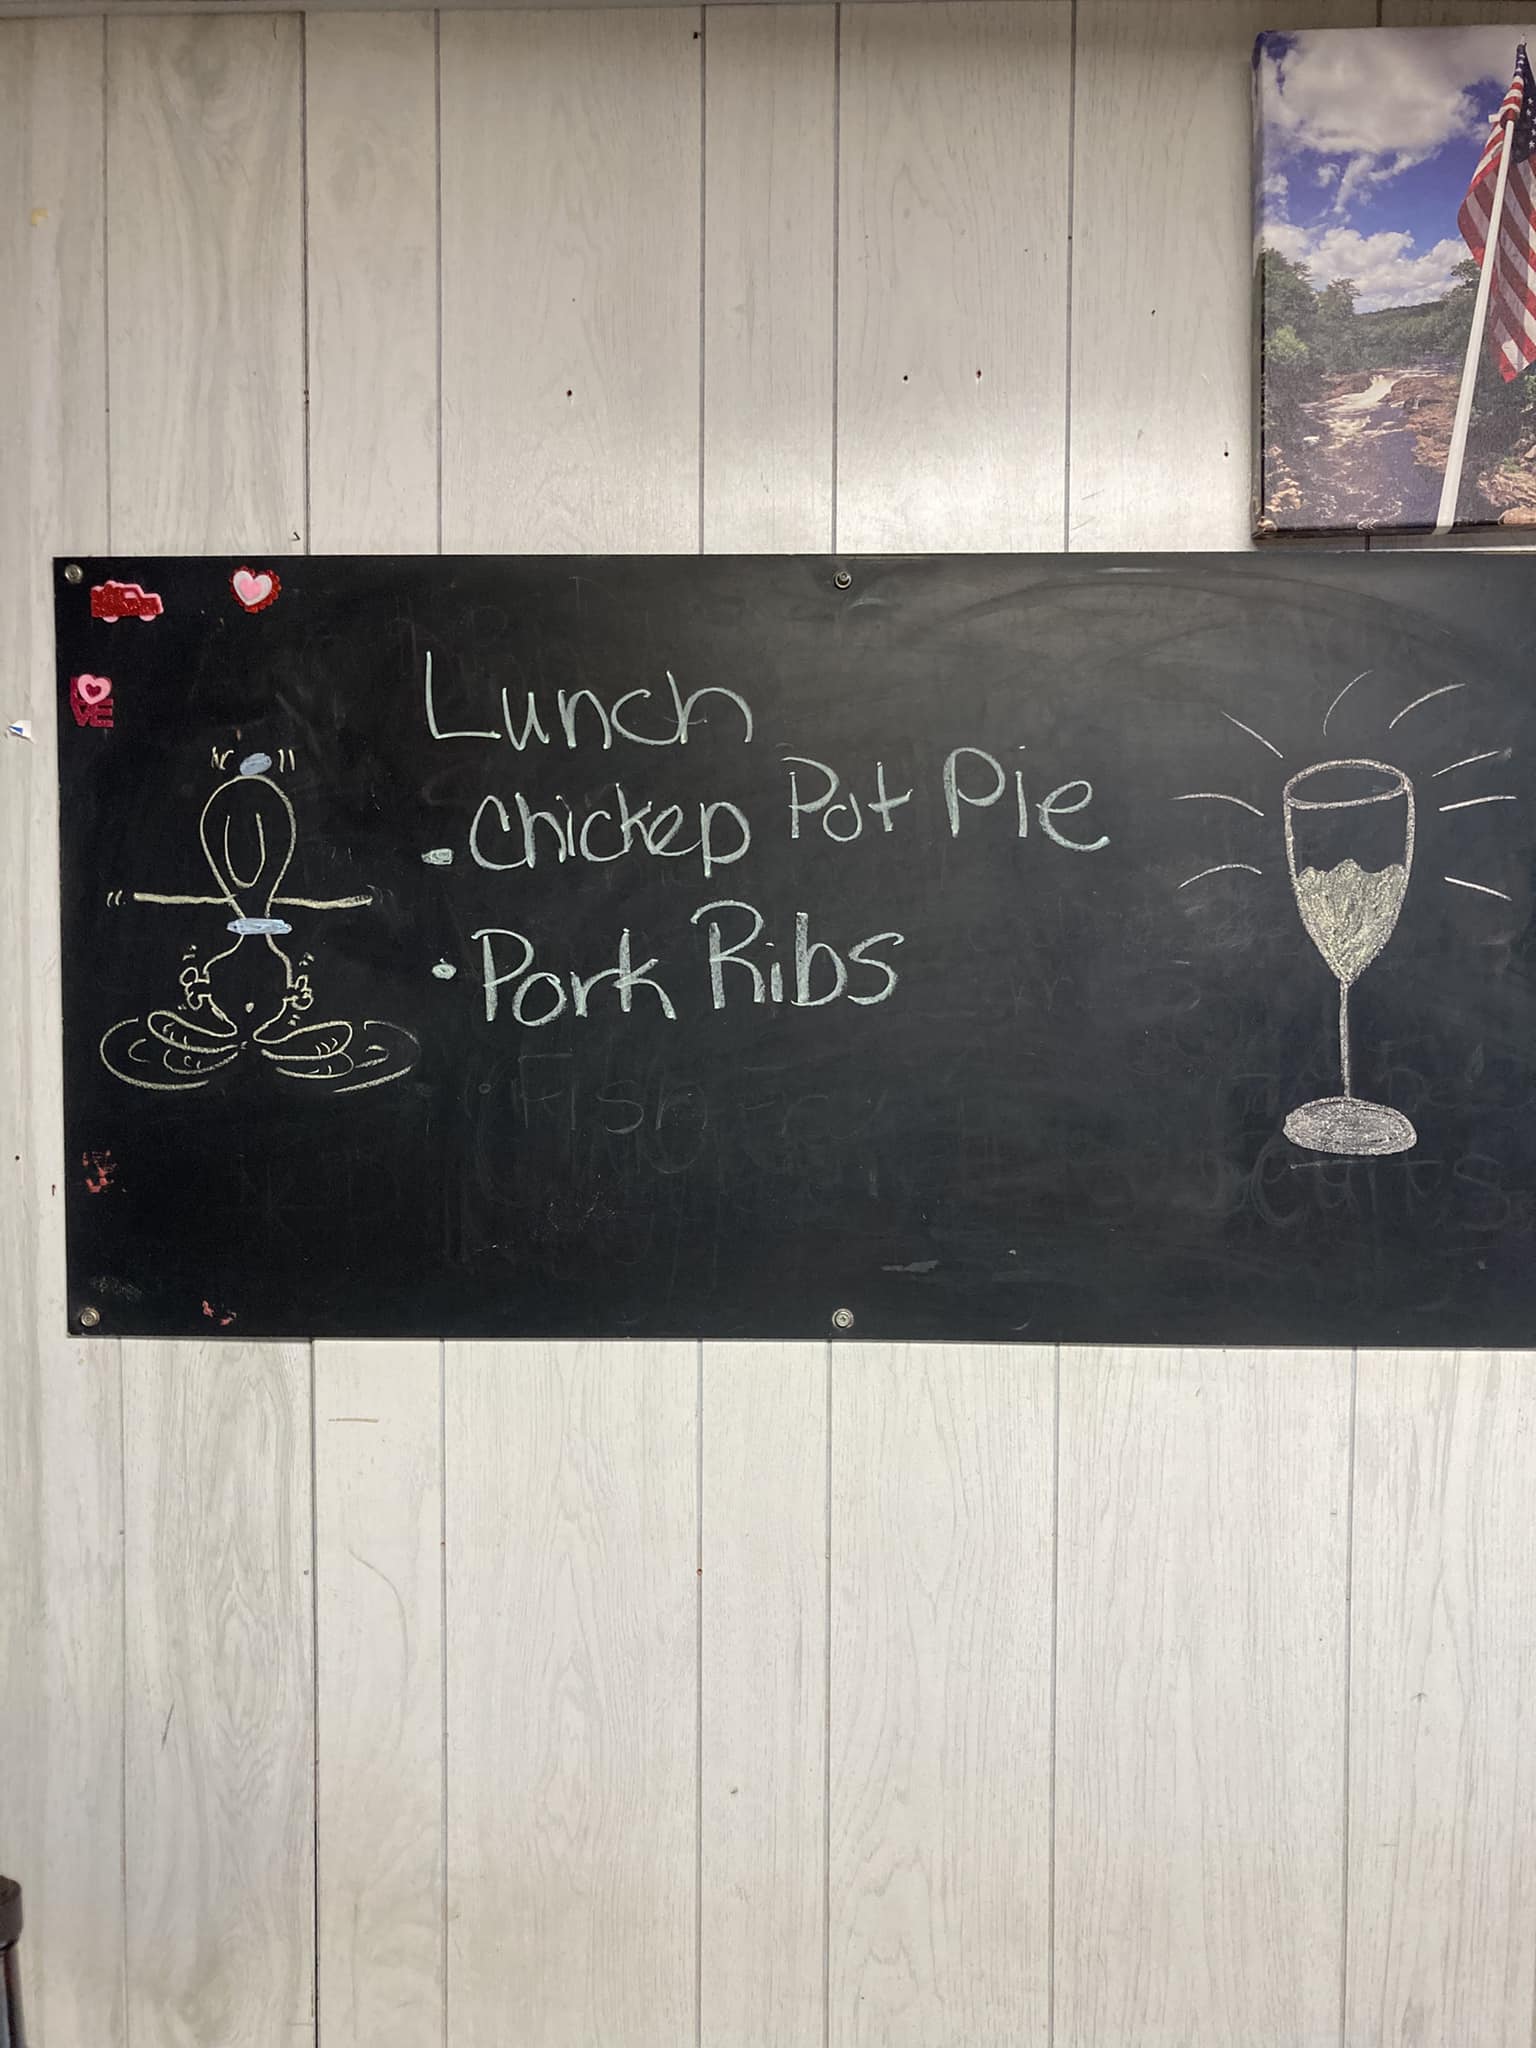 Lunch
• Chicken Pot Pie
• Pork Ribs
• Fish